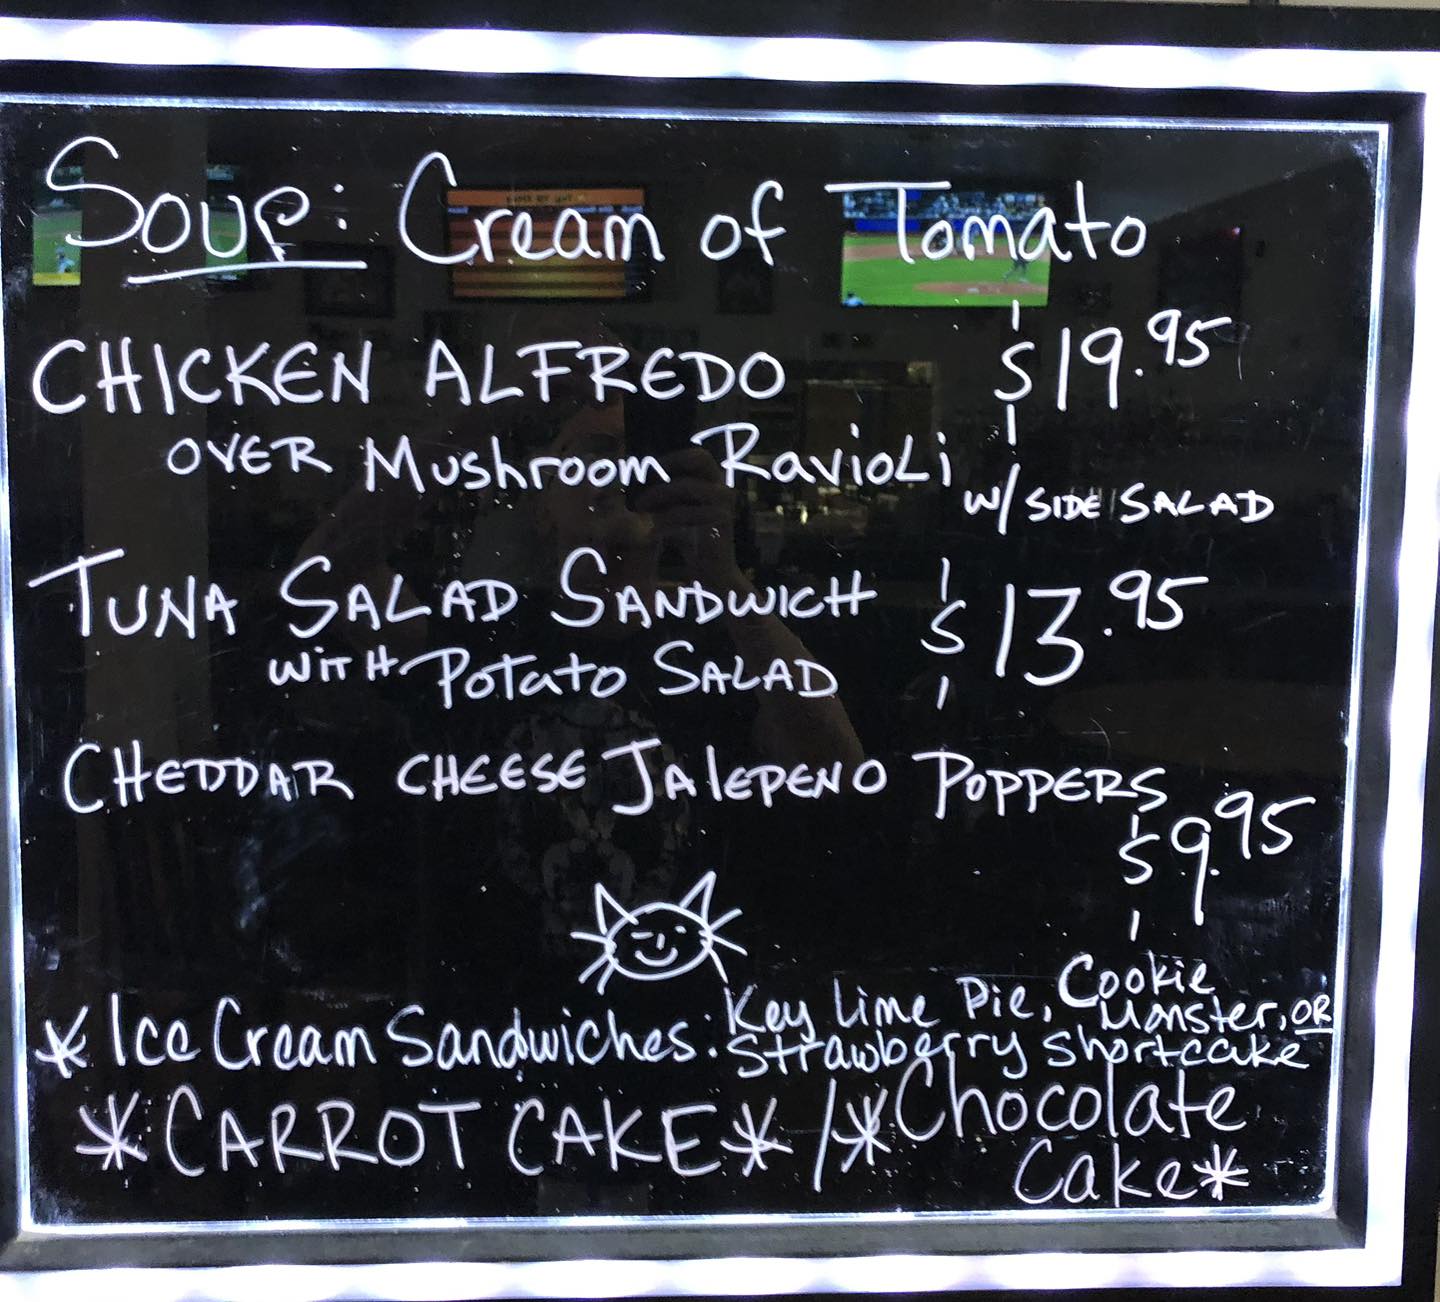 Soup: Cream of Tomato
CHICKEN ALFREDO $19.95
OVER Mushroom Ravioli W/ SIDE SALAD
TUNA SALAD SANDWICH $13.95
WITH Potato SALAD
CHEDDAR CHEESE JAlEPENO POPPERS
$9.95
* Ice Cream Sandwiches: Key Lime Pie, Cookie Monster, OR
Strawberry Shortcake
*CARROT CAKE* / *Chocolate
Cake*